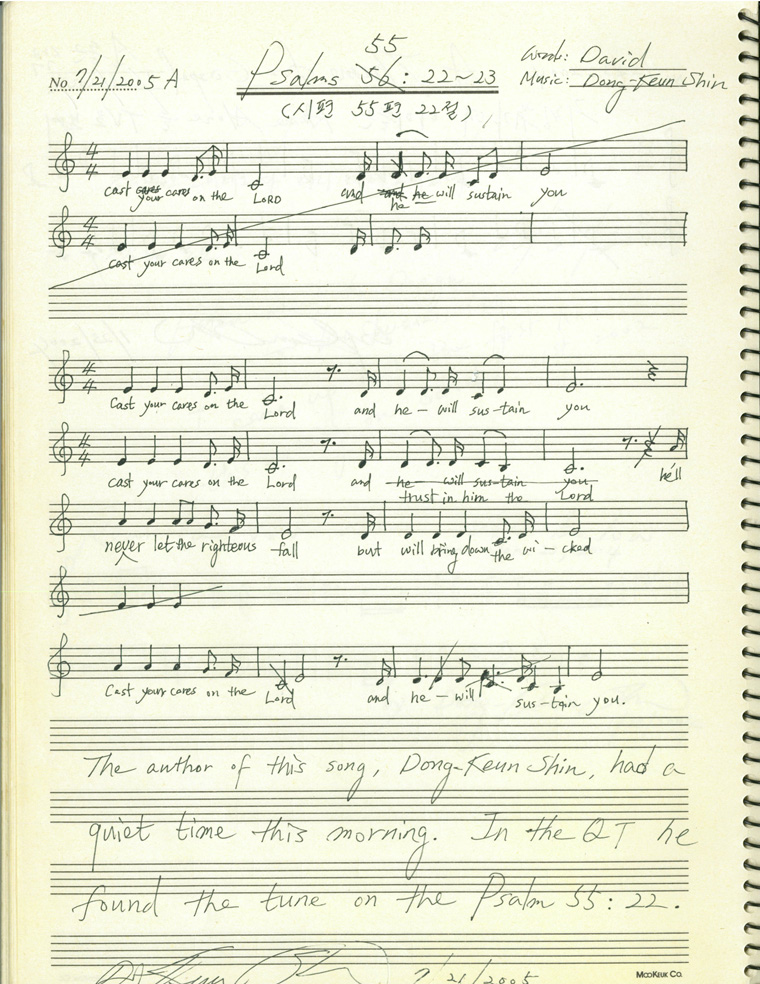 55
No 7/21/2005 A
Psalms 56 : 22~23
Words: David
Music: Dong-Keun Shin
(시편 55편 22절)
cast cares your cares on the LORD and and he he will sustain you
cast your cares on the Lord
Cast your cares on the Lord and he - will sus-tain you
cast your cares on the Lord and he - will sus-tain you he'll
trust in him the Lord
never let the righteous fall but will bring down the wi-cked
Cast your cares on the Lord and he - will sus-tain you.
The author of this song, Dong-Keun Shin, had a
quiet time this morning. In the QT he
found the tune on the Psalm 55 : 22.
7/21/2005
MOOKEUK CO.